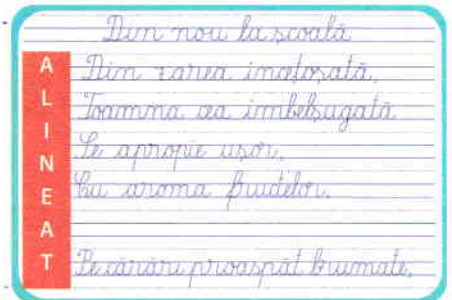 Din nou la școală
ALINEAT
Din zarea incețoșată,
Toamna cea îmbelșugată
Se apropie ușor,
Cu aroma fructelor.
Pe cărări proaspăt brumate,